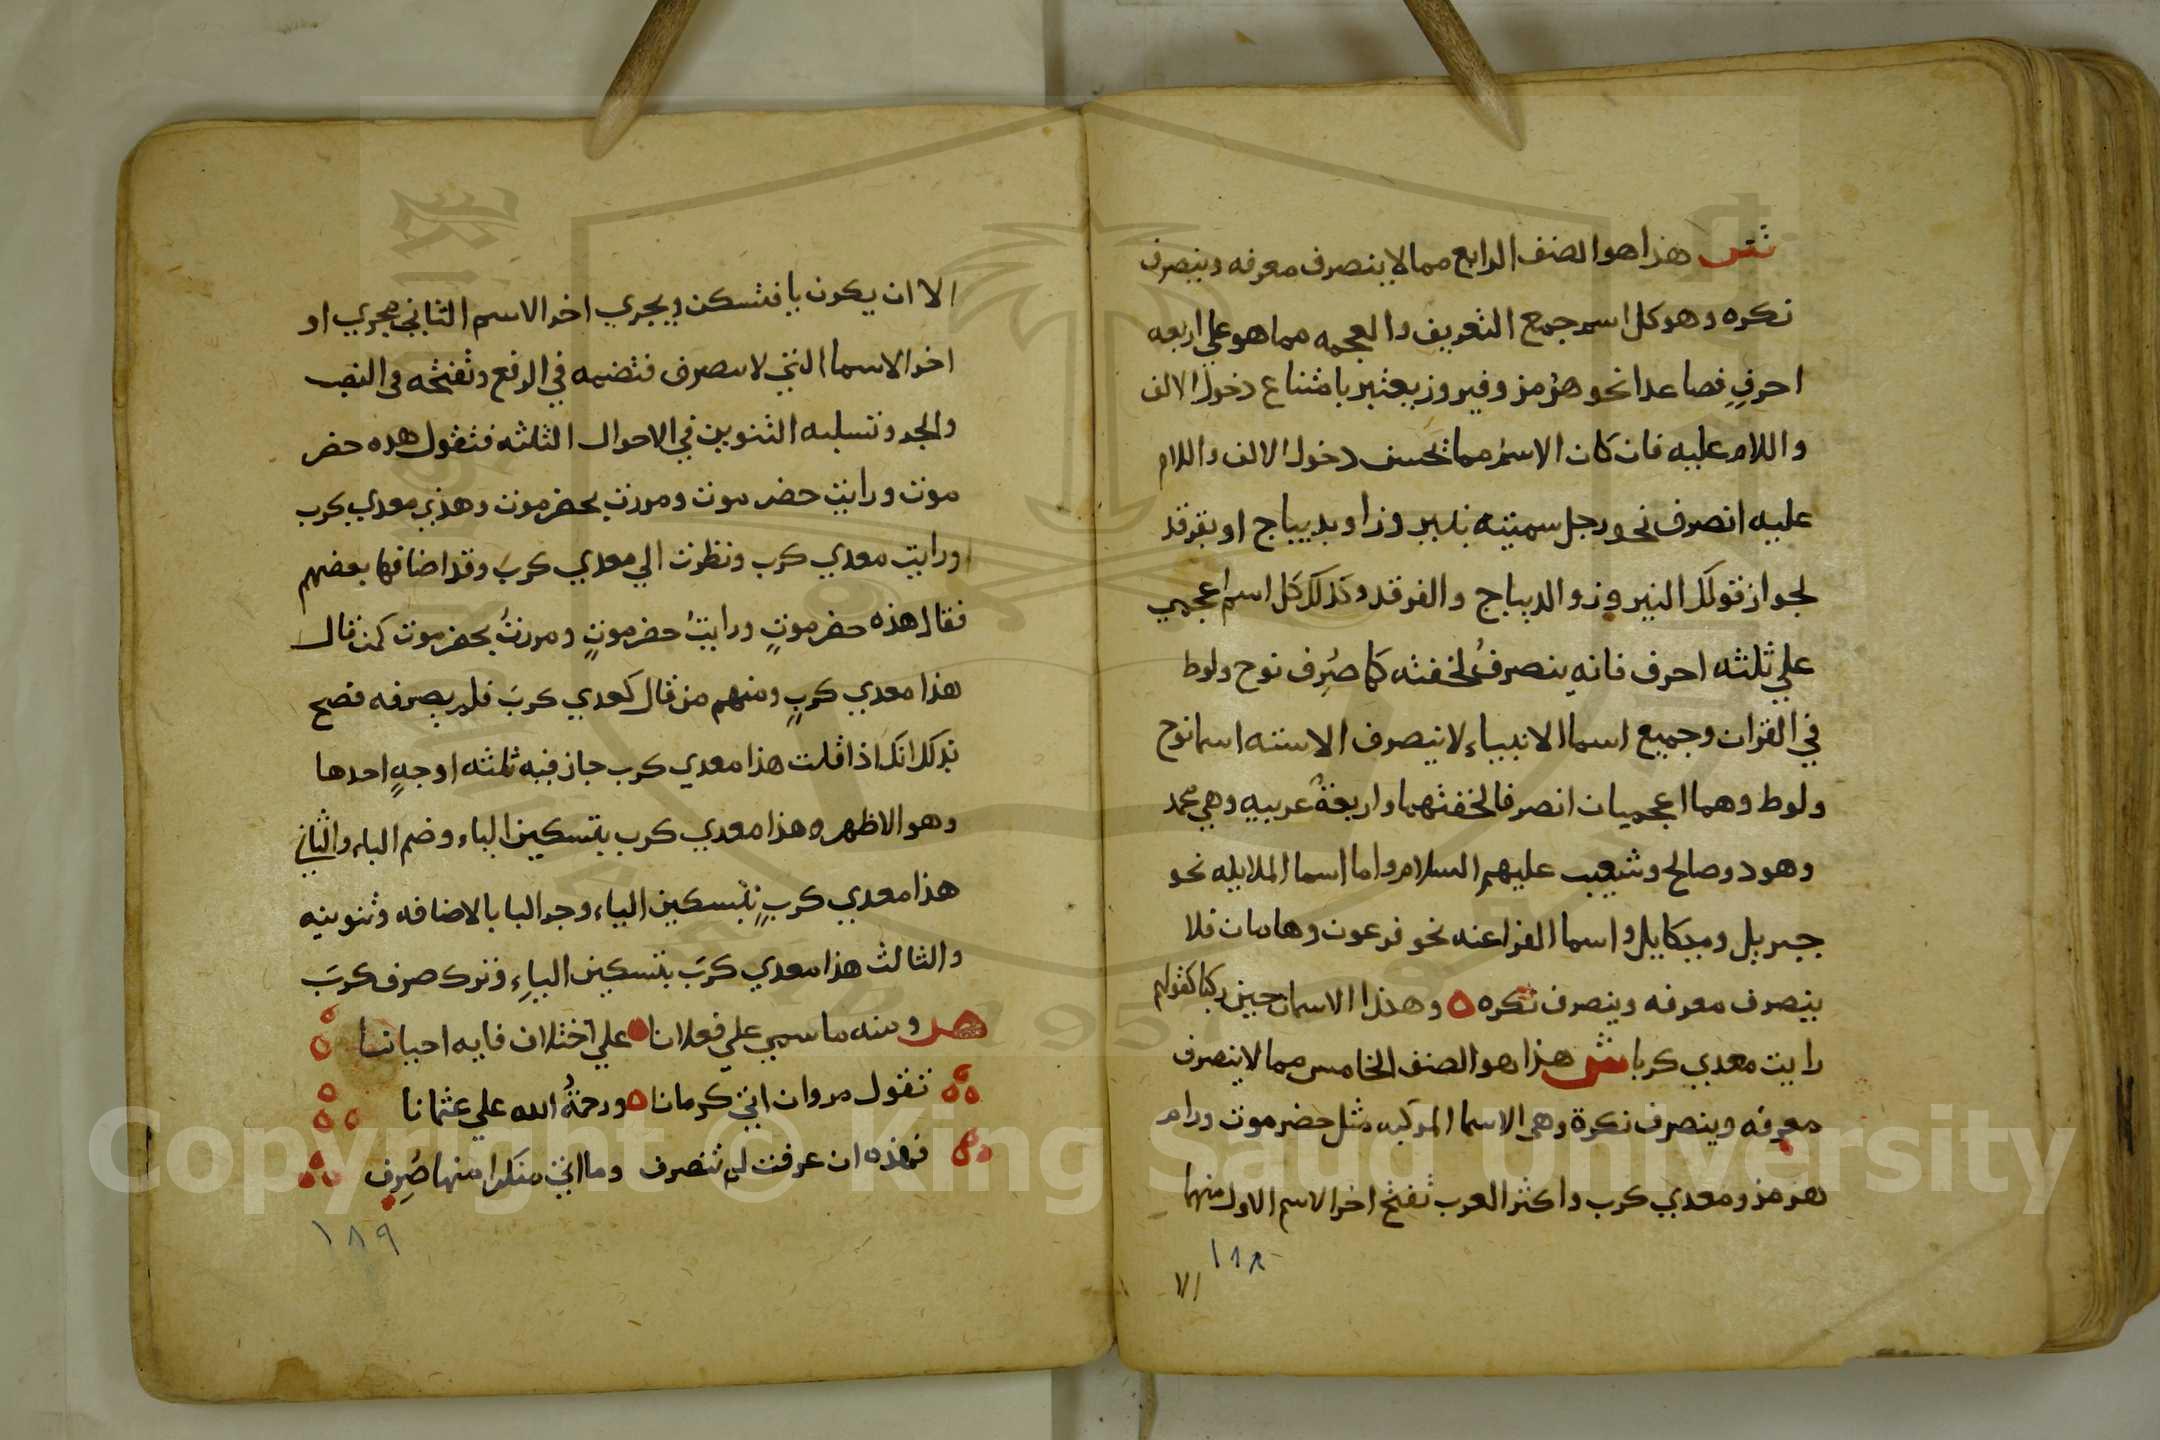 شش هذا هو الصنف الرابع مما لا ينصرف معرفه وينصرف
نكره وهو كل اسم جمع التعريف والعجمه مما هو علي اربعه
احرفٍ فصاعدا نحو هرمز وفيروز يعتبر بامتناع دخول الالف
واللام عليه فان كان الاسم مما تحسن دخول الالف واللام
عليه انصرف نحو رجل سميته بنيروز او بديباج او بفرقد
لجواز قولك النيروز والديباج والفرقد وكذلك كل اسم اعجمي
علي ثلثه احرف فانه ينصرفُ لخفته كما صُرِف نوح ولوط
في القران وجميع اسما الانبياء لا ينصرف الا سته اسما نوح
ولوط وهما اعجميان انصرفا لخفتهما واربعةٌ عربيه وهي محمد
وهود وصالح وشعيب عليهم السلام واما اسما الملايله نحو
جبريل وميكاييل واسما الفراعنه نحو فرعون وهامان فلا
ينصرف معرفه وينصرف نكره ه وهكذا الاسمان حين ركبا كقولهم
رايت معدي كربا شش هذا هو الصنف الخامس مما لا ينصرف
معرفه وينصرف نكرة وهي الاسما المركبه مثل حضرموت ورام
هرمز ومعدي كرب واكثر العرب تفتح اخر الاسم الاول منهما
١٨٨
الا
الا ان يكون يا فتسكن ويجري اخر الاسم الثاني مجري او
اخر الاسما التي لا ينصرف فتضمه في الرفع وتفتحه في النصب
والجر وتسلبه التنوين في الاحوال الثلثه فتقول هده حضر
موت ورايت حضر موت ومررت بحضرموت وهذي معدي كرب
ورايت معدي كرب ونظرت الي معدي كربَ وقد اضافها بعضهم
فقال هذه حضرموتٍ ورايتُ حضرموتٍ ومررتُ بحضرموت كمن قال
هذا معدي كربٍ ومنهم من قال كعدي كربَ فلم يصرفه فصح
بذلك انك اذا قلت هذا معدي كرب جاز فيه ثلثه اوجهٍ احدها
وهو الاظهر وهذا معدي كرب بتسكين الياء وضم الباء والثاني
هذا معدي كربٍ بتسكين الياء وجر البا بالاضافه وتنوينه
والثالث هذا معدي كربَ بتسكين الياءِ وترك صرف كربَ
ص ومنه ما سمي علي فعلانا ه علي اختلاف فايه احيانا
تقول مروان اتي كرمانا ه ورحمةُ الله علي عثمانا
فهذه ان عرفت لم تنصرف وما اتي منكرا منها صُرِف
١٨٩